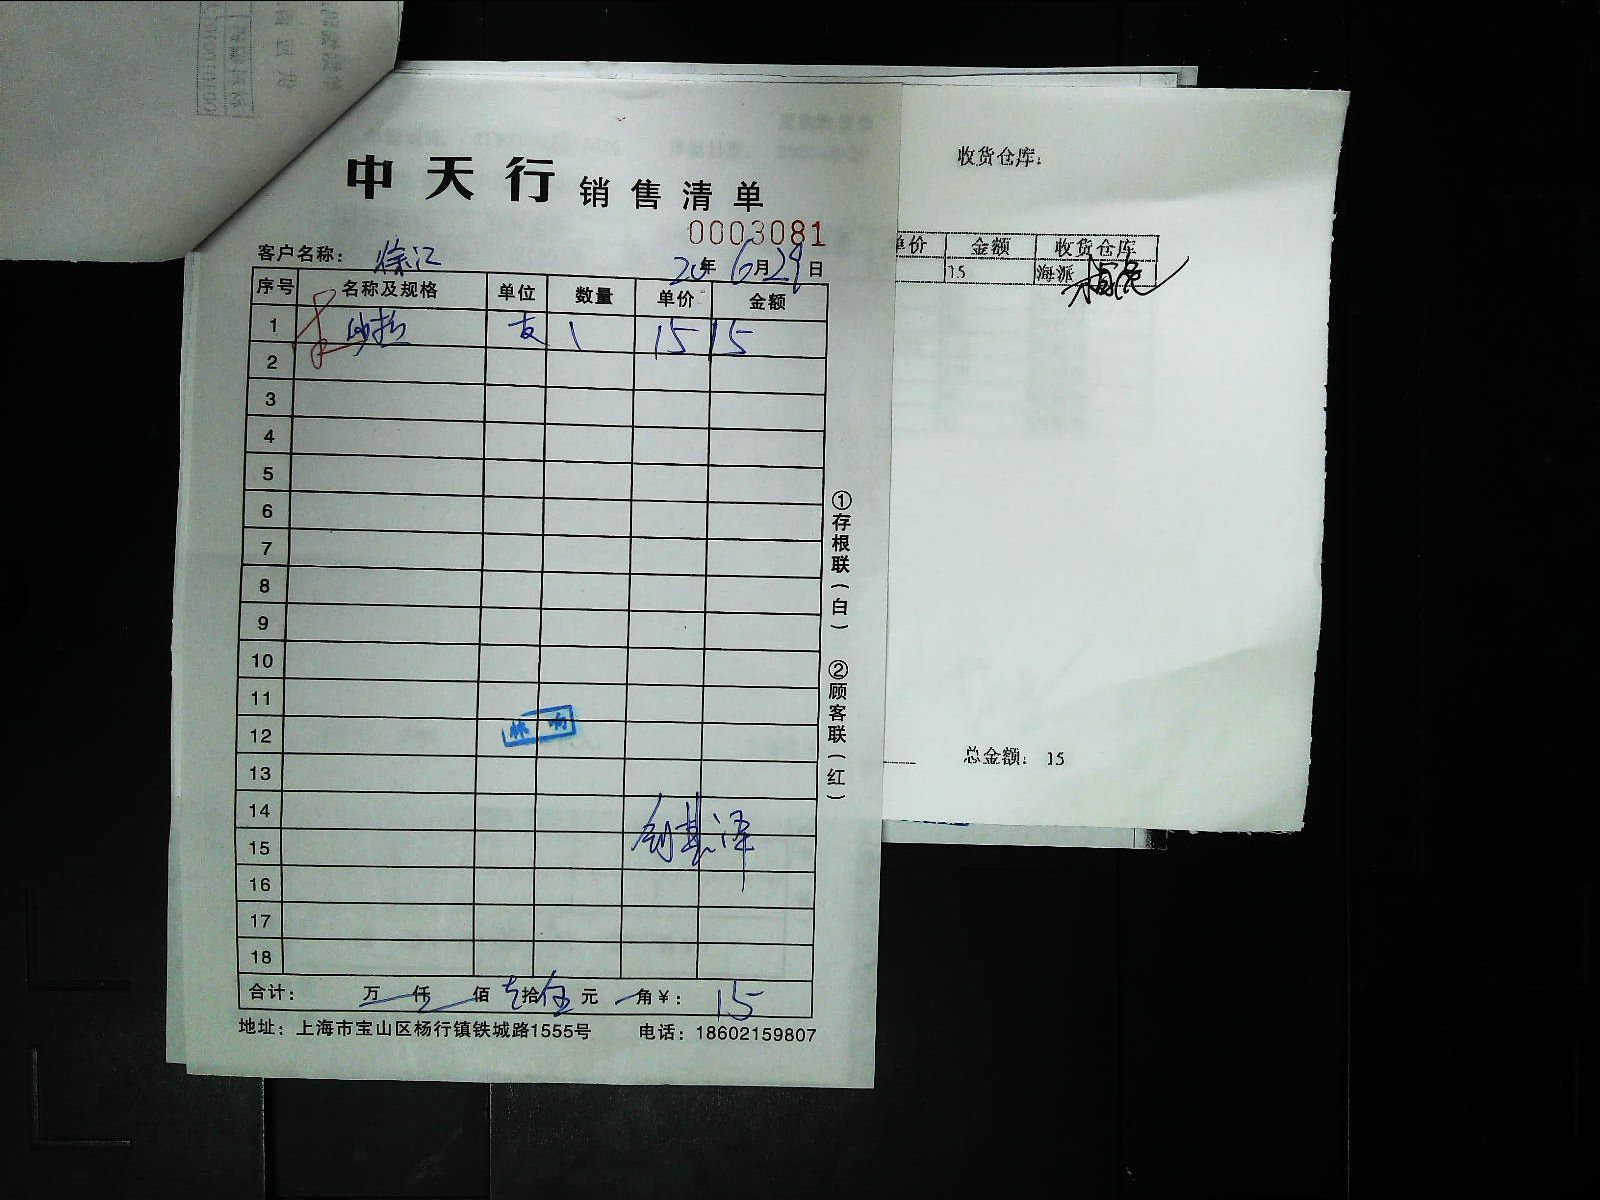 中天行 销售清单
0003081
客户名称： 徐汇
20年 6月29日
序号 名称及规格 单位 数量 单价 金额
1 沙拉 支 1 15 15
2
3
4
5
6
7
8
9
10
11
12
13
14
15
16
17
18
合计： 万 仟 佰 拾伍元 角¥： 15
地址：上海市宝山区杨行镇铁城路1555号 电话：18602159807
①存根联(白) ②顾客联(红)
收货仓库：
单价 金额 收货仓库
15 海派
总金额： 15